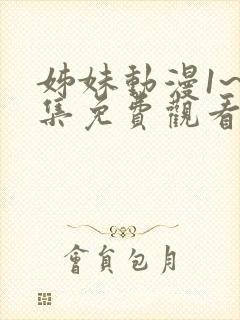 姊妹動漫1~
集免費觀看
會員包月